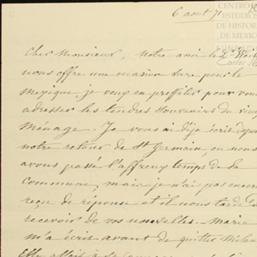 CENTRO
ESTUDIOS
DE HISTOR
DE MEXICO
6 aout 71
Cher Monsieur, notre ami le Dr
nous offre une occasion sure pour le
Mexique je veux en profiter pour vous
adresser les tendres souvenirs du vieux
Ménage. Je vous ai déjà écrit après
notre retour de St Germain, où nous
avons passé l'affreux temps de la
commune, mais je n'ai pas encore
reçu de réponse et il nous tarde de
recevoir de vos nouvelles. Marie
m'a écrit avant de quitter Milan
Elle allait